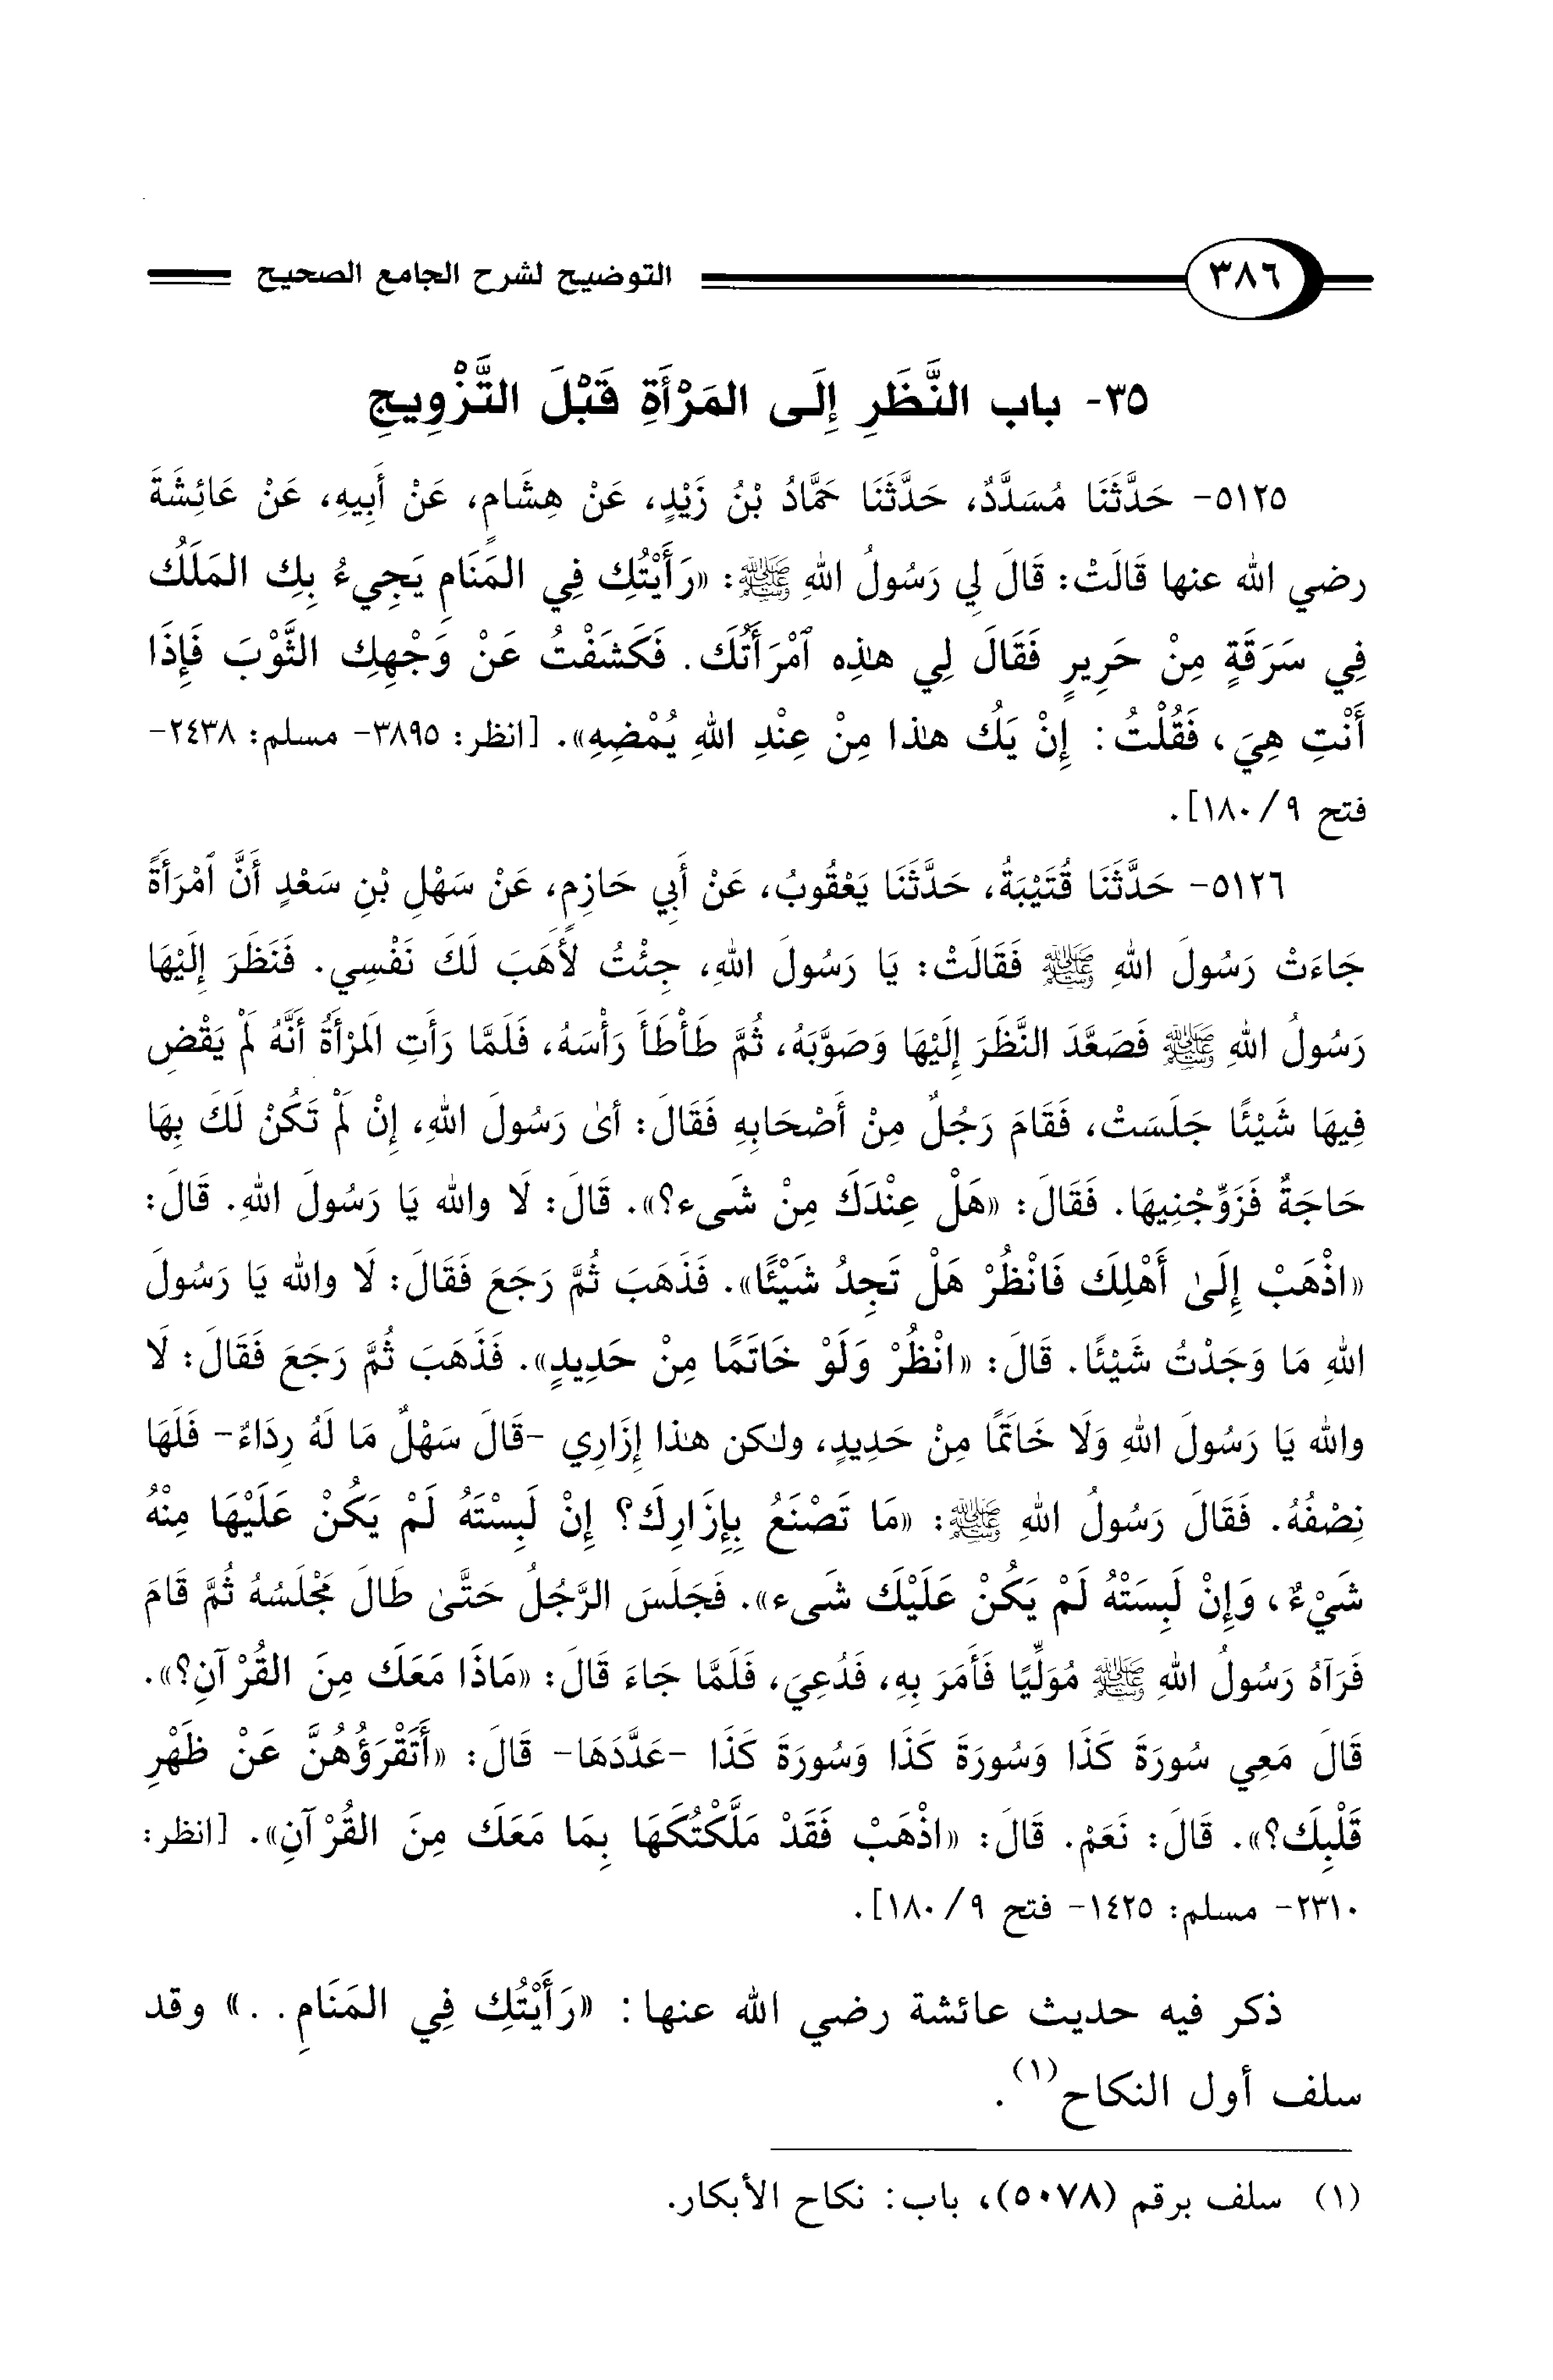 ٣٨٦ التوضيح لشرح الجامع الصحيح
٣٥- باب النَّظَرِ إِلَى المَرْأَةِ قَبْلَ التَّزْوِيجِ
٥١٢٥- حَدَّثَنَا مُسَدَّدٌ، حَدَّثَنَا حَمَّادُ بْنُ زَيْدٍ، عَنْ هِشَامٍ، عَنْ أَبِيهِ، عَنْ عَائِشَةَ
رضي الله عنها قَالَتْ: قَالَ لِي رَسُولُ اللهِ ﷺ: «رَأَيْتُكِ فِي المَنَامِ يَجِيءُ بِكِ المَلَكُ
فِي سَرَقَةٍ مِنْ حَرِيرٍ فَقَالَ لِي هذِه ٱمْرَأَتُكَ. فَكَشَفْتُ عَنْ وَجْهِكِ الثَّوْبَ فَإِذَا
أَنْتِ هِيَ، فَقُلْتُ: إِنْ يَكُ هذا مِنْ عِنْدِ اللهِ يُمْضِهِ». [انظر: ٣٨٩٥- مسلم: ٢٤٣٨-
فتح ٩/ ١٨٠].
٥١٢٦- حَدَّثَنَا قُتَيْبَةُ، حَدَّثَنَا يَعْقُوبُ، عَنْ أَبِي حَازِمٍ، عَنْ سَهْلِ بْنِ سَعْدٍ أَنَّ ٱمْرَأَةً
جَاءَتْ رَسُولَ اللهِ ﷺ فَقَالَتْ: يَا رَسُولَ اللهِ، جِئْتُ لأَهَبَ لَكَ نَفْسِي. فَنَظَرَ إِلَيْهَا
رَسُولُ اللهِ ﷺ فَصَعَّدَ النَّظَرَ إِلَيْهَا وَصَوَّبَهُ، ثُمَّ طَأْطَأَ رَأْسَهُ، فَلَمَّا رَأَتِ الَمرْأَةُ أَنَّهُ لَمْ يَقْضِ
فِيهَا شَيْئًا جَلَسَتْ، فَقَامَ رَجُلٌ مِنْ أَصْحَابِهِ فَقَالَ: أىْ رَسُولَ اللهِ، إِنْ لَمْ تَكُنْ لَكَ بِهَا
حَاجَةٌ فَزَوِّجْنِيهَا. فَقَالَ: «هَلْ عِنْدَكَ مِنْ شَىء؟». قَالَ: لَا والله يَا رَسُولَ اللهِ. قَالَ:
«اذْهَبْ إِلَىٰ أَهْلِكَ فَانْظُرْ هَلْ تَجِدُ شَيْئًا». فَذَهَبَ ثُمَّ رَجَعَ فَقَالَ: لَا والله يَا رَسُولَ
اللهِ مَا وَجَدْتُ شَيْئًا. قَالَ: «انْظُرْ وَلَوْ خَاتَمًا مِنْ حَدِيدٍ». فَذَهَبَ ثُمَّ رَجَعَ فَقَالَ: لَا
والله يَا رَسُولَ اللهِ وَلَا خَاتَمًا مِنْ حَدِيدٍ، ولكن هذا إِزَارِي -قَالَ سَهْلٌ مَا لَهُ رِدَاءٌ- فَلَهَا
نِصْفُهُ. فَقَالَ رَسُولُ اللهِ ﷺ: «مَا تَصْنَعُ بِإِزَارِكَ؟ إِنْ لَبِسْتَهُ لَمْ يَكُنْ عَلَيْهَا مِنْهُ
شَيْءٌ، وَإِنْ لَبِسَتْهُ لَمْ يَكُنْ عَلَيْكَ شَىء». فَجَلَسَ الرَّجُلُ حَتَّىٰ طَالَ مَجْلَسُهُ ثُمَّ قَامَ
فَرَآهُ رَسُولُ اللهِ ﷺ مُوَلِّيًا فَأَمَرَ بِهِ، فَدُعِيَ، فَلَمَّا جَاءَ قَالَ: «مَاذَا مَعَكَ مِنَ القُرْآنِ؟».
قَالَ مَعِي سُورَةَ كَذَا وَسُورَةَ كَذَا وَسُورَةَ كَذَا -عَدَّدَهَا- قَالَ: «أَتَقْرَؤُهُنَّ عَنْ ظَهْرِ
قَلْبِكَ؟». قَالَ: نَعَمْ. قَالَ: «اذْهَبْ فَقَدْ مَلَّكْتُكَهَا بِمَا مَعَكَ مِنَ القُرْآنِ». [انظر:
٢٣١٠- مسلم: ١٤٢٥- فتح ٩/ ١٨٠].
ذكر فيه حديث عائشة رضي الله عنها: «رَأَيْتُكِ فِي المَنَامِ..» وقد
سلف أول النكاح(١).
(١) سلف برقم (٥٠٧٨)، باب: نكاح الأبكار.